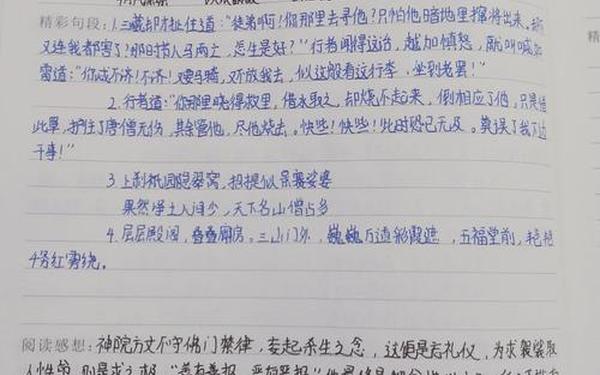 精彩句段:1.三藏却才扯住道:"徒弟啊!你那里去寻他?只怕他暗地里撺将出来,
又连我都害了!那时节人马两亡,怎生是好?"行者闻得这话,越加愤怒,就叫喊如
雷道:"你忒不济!不济!又要马骑,又不放我去,似这般看这行李,坐到老罢!"
2.行者道:"你那里晓得就里,借水取之,却烧不起来,倒相应了他,只是借
此罩,护住了唐僧无伤,其余管他,尽他烧去。快些!快些!此时恐已无及。莫误了我下边
干事!"
3.上刹祇园隐翠窝,招提似景赛娑婆
果然净土人间少,天下名山僧占多
4.层层殿阁,叠叠厢房。三山门外,巍巍万道彩霞遮,五福堂前,艳艳
千条红雾绕。
阅读感想:神院方丈不守佛门禁律,妄起杀生之念,这便是忘礼仪,为求袈裟